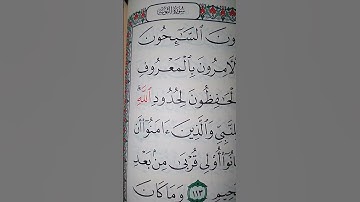 سُورَةُ التَّوْبَةِ
ونَ ٱلسَّٰٓئِحُونَ
لْأٓمِرُونَ بِٱلْمَعْرُوفِ
لْحَٰفِظُونَ لِحُدُودِ ٱللَّهِ
لِلنَّبِيِّ وَٱلَّذِينَ ءَامَنُوٓا۟ أَن
انُوٓا۟ أُو۟لِي قُرْبَىٰ مِنۢ بَعْدِ
حِيمِ ١١٣ وَمَا كَانَ